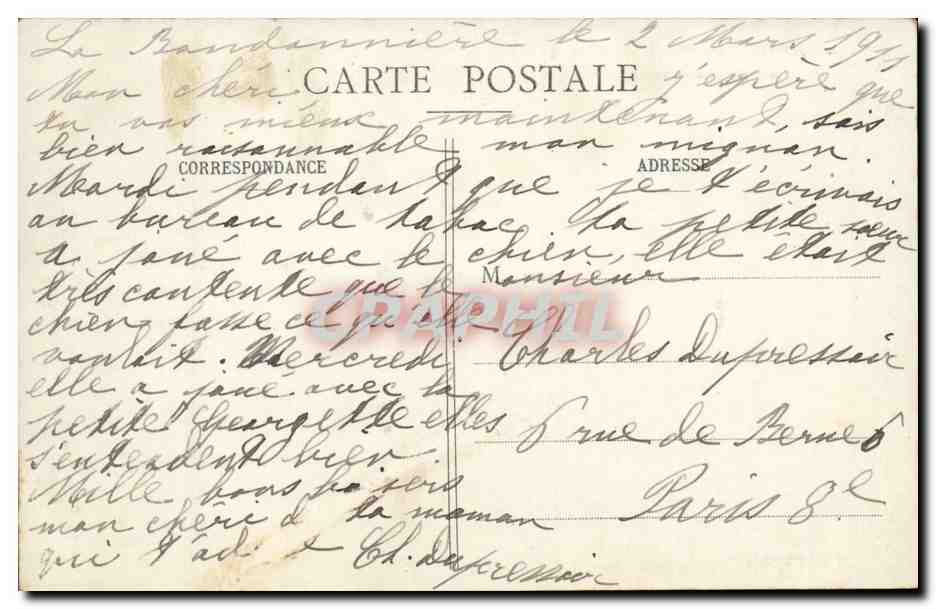 La Bandonnière le 2 Mars 1911
CARTE POSTALE
Mon chéri j'espère que
tu vas mieux maintenant, sois
bien raisonnable mon mignon.
CORRESPONDANCE
ADRESSE
Mardi pendant que je t'écrivais
au bureau de tabac ta petite sœur
a joué avec le chien, elle était
très contente que le
chien fasse ce qu'elle
voulait. Mercredi
elle a joué avec la
petite Georgette elles
s'entendent bien.
Mille bons baisers
mon chéri de ta maman
qui t'ad Ch. Dupressoir
Monsieur
Charles Dupressoir
6 rue de Berne 6
Paris 8e
CRAPHIL